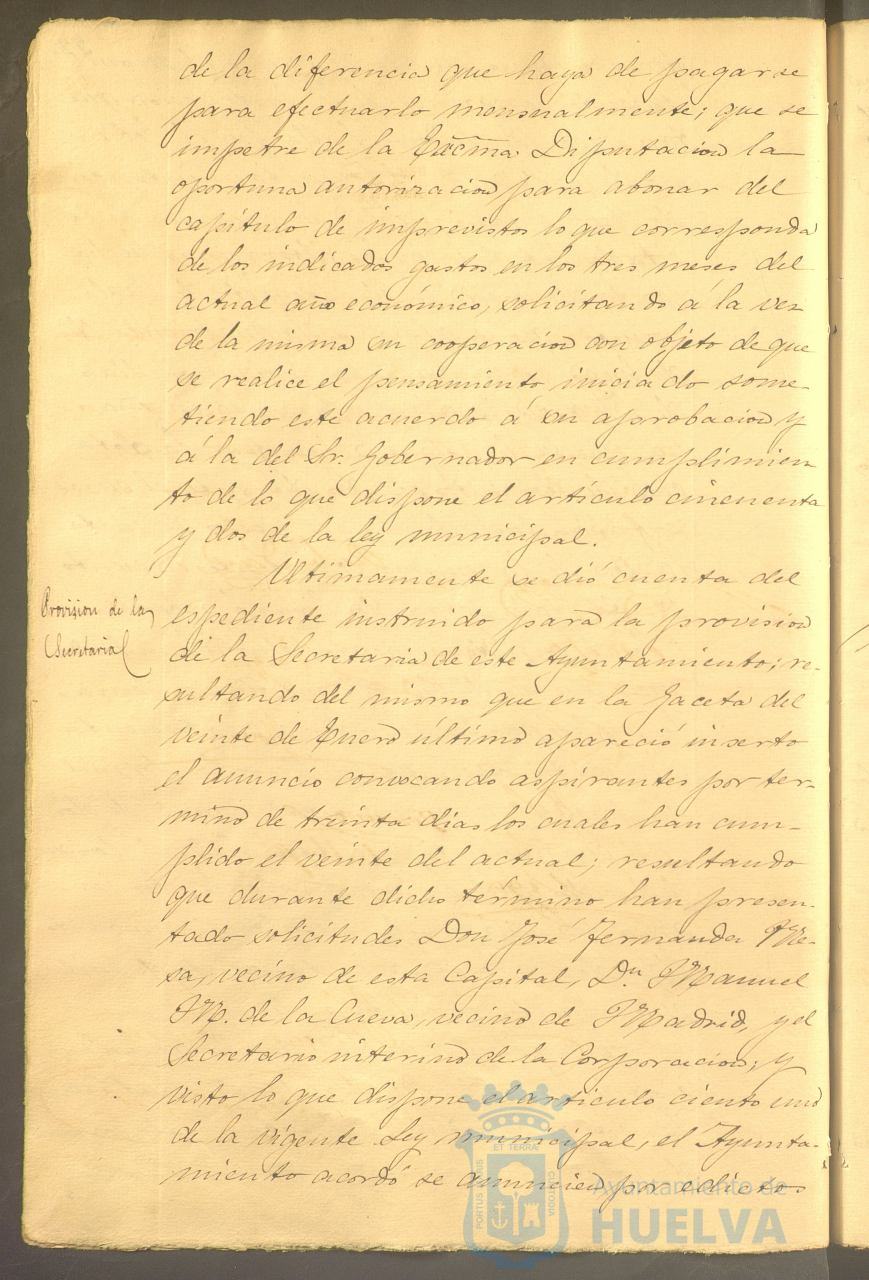 de la diferencia que haya de pagarse
para efectuarlo mensualmente; que se
impetre de la Excma. Diputacion la
oportuna autorizacion para abonar del
capítulo de imprevistos lo que corresponda
de los indicados gastos en los tres meses del
actual año económico, solicitando á la vez
de la misma su cooperacion con objeto de que
se realice el pensamiento iniciado some-
tiendo este acuerdo á su aprobacion y
á la del Sr. Gobernador en cumplimien
to de lo que dispone el artículo cincuenta
y dos de la ley municipal.
Ultimamente se dió cuenta del
Provision de la
Secretaria
espediente instruido para la provision
de la Secretaria de este Ayuntamiento; re-
sultando del mismo que en la Gaceta del
veinte de Enero último apareció inserto
el anuncio convocando aspirantes por ter-
mino de treinta dias los cuales han cum-
plido el veinte del actual; resultando
que durante dicho término han presen-
tado solicitudes Don José Fernandez Me-
sa, vecino de esta Capital, Dn. Manuel
M. de la Cueva, vecino de Madrid, y el
Secretario interino de la Corporacion; y
visto lo que dispone el articulo ciento uno
de la vigente Ley municipal, el Ayunta-
miento acordó se anuncien por edictos
PORTUS MARIS
ET TERRAE
CUSTODIA
Ayuntamiento de
HUELVA